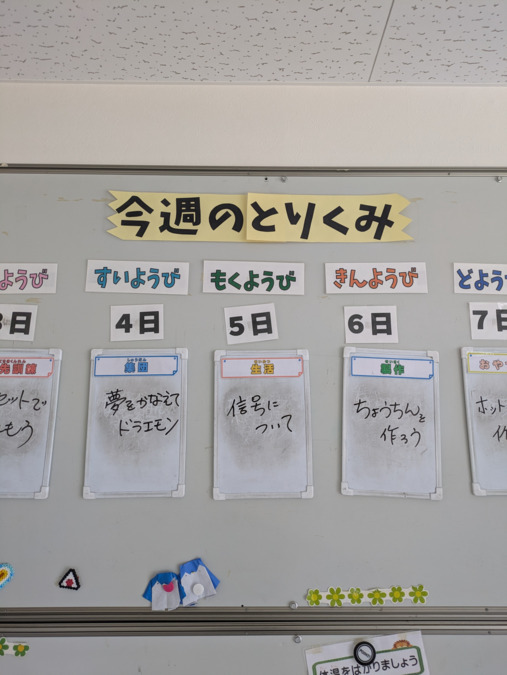 今週のとりくみ
ようび
すいようび
もくようび
きんようび
どよう
3日
4日
5日
6日
7日
集団
夢をかなえて
ドラエモン
生活
信号に
ついて
製作
ちょうちんを
作ろう
おや
ホット
体温をはかりましょう